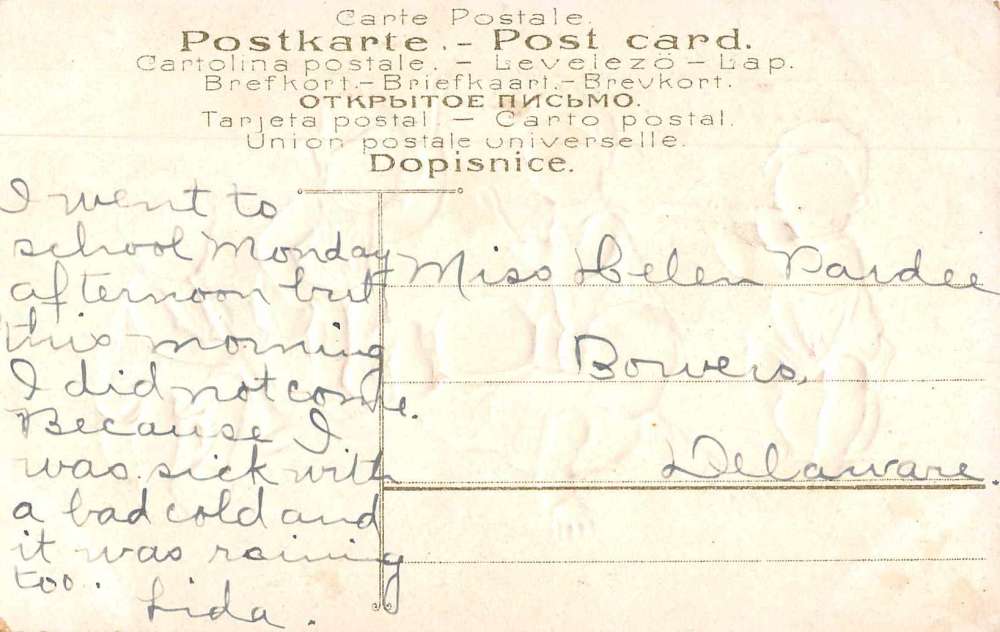 Carte Postale.
Postkarte. - Post card.
Cartolina postale. - Levelezö - Lap.
Brefkort. - Briefkaart. - Brevkort.
ОТКРЫТОЕ ПИСЬМО.
Tarjeta postal. - Carto postal.
Union postale universelle.
Dopisnice.
I went to
school Monday
afternoon but
this morning
I did not come.
Because I
was sick with
a bad cold and
it was raining
too.
Lida.
Miss Helen Pardee
Bowers,
Delaware.